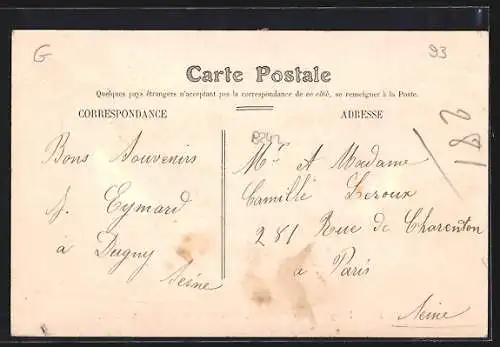 G
93
Carte Postale
Quelques pays étrangers n'acceptant pas la correspondance de ce côté, se renseigner à la Poste.
CORRESPONDANCE
ADRESSE
Bons Souvenirs
J. Eymard
à Dugny
Seine
Mr et Madame
Camille Leroux
281 Rue de Charenton
à Paris
Seine
281